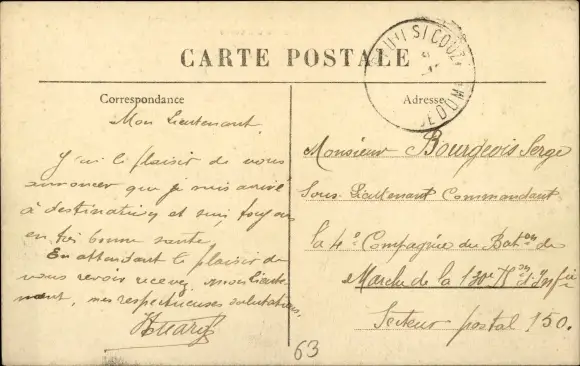 CARTE POSTALE
Correspondance
Mon Lieutenant,
J'ai le plaisir de vous
annoncer que je suis arrivé
à destination et suis toujours
en très bonne santé.
En attendant le plaisir de
vous revoir recevez, mon Lieute-
nant, mes respectueuses salutations.
Adresse
Monsieur Bourgeois Serge
Sous-Lieutenant Commandant
la 4e Compagnie du Baton de
Marche de la d'Infie
Secteur postal 150.
63